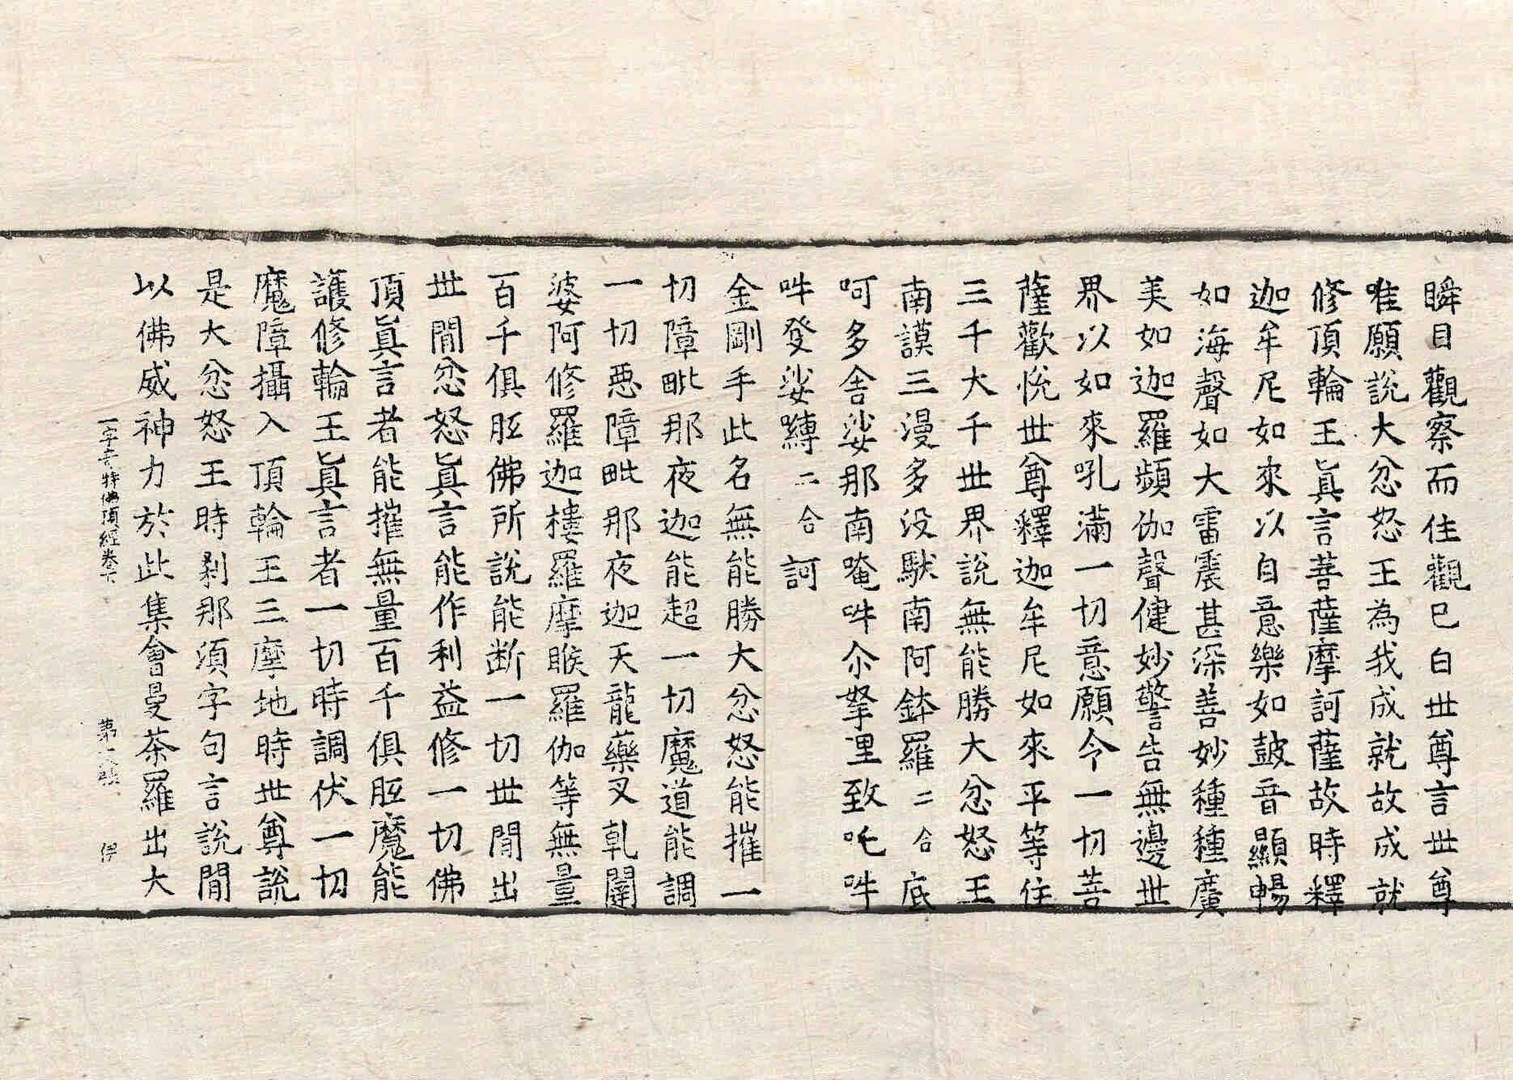 瞬目觀察而住觀已白世尊言世尊
唯願說大忿怒王為我成就故成就
修頂輪王真言菩薩摩訶薩故時釋
迦牟尼如來以自意樂如鼓音顯暢
如海聲如大雷震甚深善妙種種廣
美如迦羅頻伽聲健妙警告無邊世
界以如來吼滿一切意願今一切菩
薩歡悅世尊釋迦牟尼如來平等住
三千大千世界說無能勝大忿怒王
南謨三漫多没馱南阿鉢羅二合底
呵多舍娑那南唵吽尒拏里致吒吽
吽發娑縛二合訶
金剛手此名無能勝大忿怒能摧一
切障毗那夜迦能超一切魔道能調
一切惡障毗那夜迦天龍藥叉乹闥
婆阿修羅迦樓羅摩睺羅伽等無量
百千俱胝佛所說能断一切世閒出
世閒忿怒真言能作利益修一切佛
頂真言者能摧無量百千俱胝魔能
護修輪王真言者一切時調伏一切
魔障攝入頂輪王三摩地時世尊說
是大忿怒王時剎那須字句言說閒
以佛威神力於此集會曼荼羅出大
一字奇特佛頂經卷下 第 張 俘